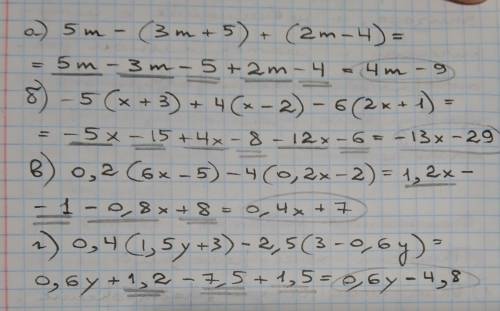 а) 5m - (3m + 5) + (2m - 4) =
= 5m - 3m - 5 + 2m - 4 = 4m - 9
б) - 5 (x + 3) + 4 (x - 2) - 6 (2x + 1) =
= - 5x - 15 + 4x - 8 - 12x - 6 = - 13x - 29
в) 0,2 (6x - 5) - 4 (0,2x - 2) = 1,2x -
- 1 - 0,8x + 8 = 0,4x + 7
г) 0,4 (1,5y + 3) - 2,5 (3 - 0,6y) =
0,6y + 1,2 - 7,5 + 1,5 = 0,6y - 4,8